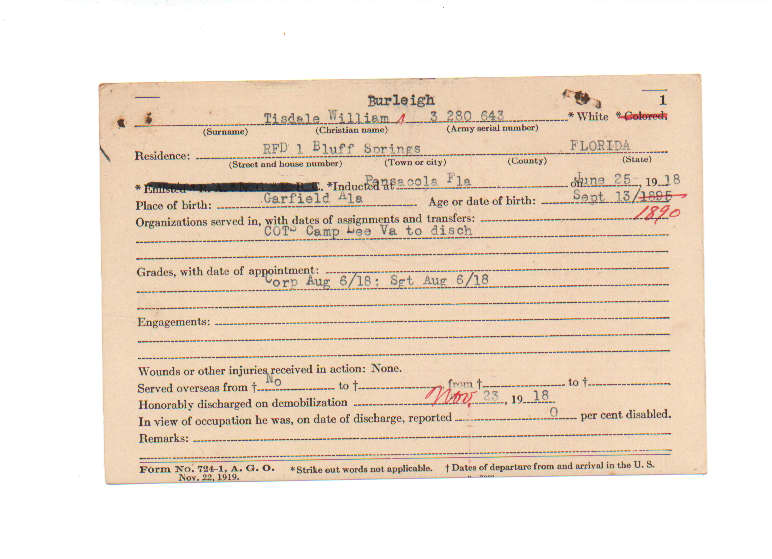 Burleigh 1
Tisdale William 3 280 643 * White * Colored.
(Surname) (Christian name) (Army serial number)
Residence: RFD 1 Bluff Springs FLORIDA
(Street and house number) (Town or city) (County) (State)
* Enlisted *Inducted at Pensacola Fla on June 25 19 18
Place of birth: Garfield Ala Age or date of birth: Sept 13/1895
1890
Organizations served in, with dates of assignments and transfers:
COTS Camp Lee Va to disch
Grades, with date of appointment:
Corp Aug 6/18; Sgt Aug 6/18
Engagements:
Wounds or other injuries received in action: None.
Served overseas from † No to † from † to †
Honorably discharged on demobilization Nov. 23, 19 18
In view of occupation he was, on date of discharge, reported 0 per cent disabled.
Remarks:
Form No. 724-1, A. G. O. *Strike out words not applicable. † Dates of departure from and arrival in the U. S.
Nov. 22, 1919.